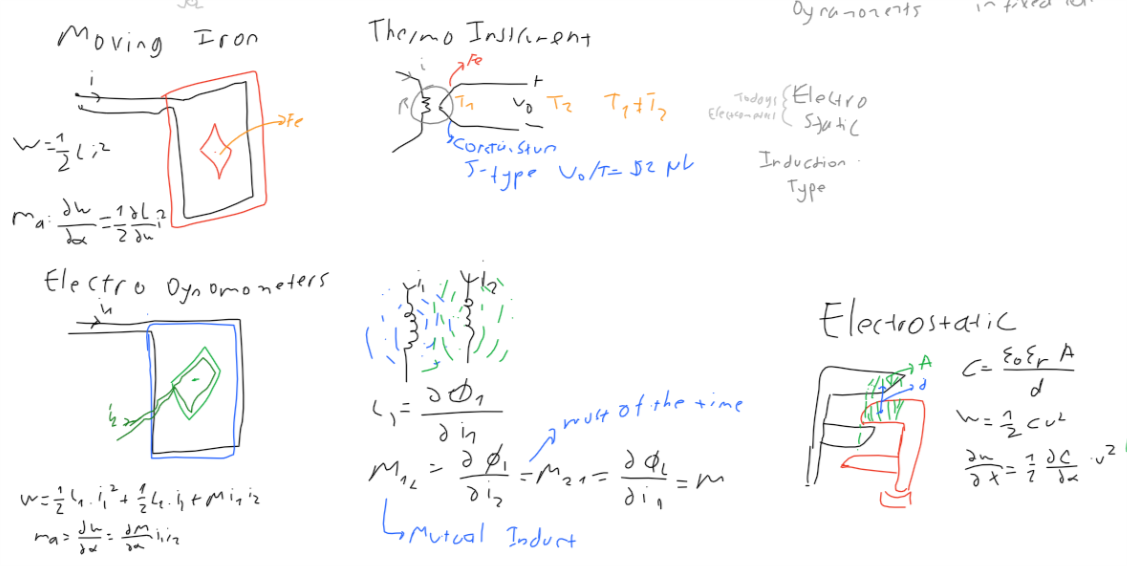 Dynamometers in fixed
Moving Iron
i
Fe
W = 1/2 L i²
Ma = ∂W/∂α = 1/2 ∂L/∂α i²
Thermo Instrument
i
Fe
R
T₁
+
V₀
-
T₂
T₁ ≠ T₂
Constantan
J-type V₀/T = 52 μV
Todays
Electro
Static
Induction
Type
Electro Dynomometers
i₁
i₂
W = 1/2 L₁ . i₁² + 1/2 L₂ . i₂ + M i₁ i₂
Ma = ∂W/∂α = ∂M/∂α i₁ i₂
i₁
i₂
L₁ = ∂Φ₁/∂i₁
most of the time
M₁₂ = ∂Φ₁/∂i₂ = M₂₁ = ∂Φ₂/∂i₁ = M
Mutual Induct
Electrostatic
A
d
C = ε₀ εr A / d
W = 1/2 C v²
∂W/∂α = 1/2 ∂C/∂α . v²